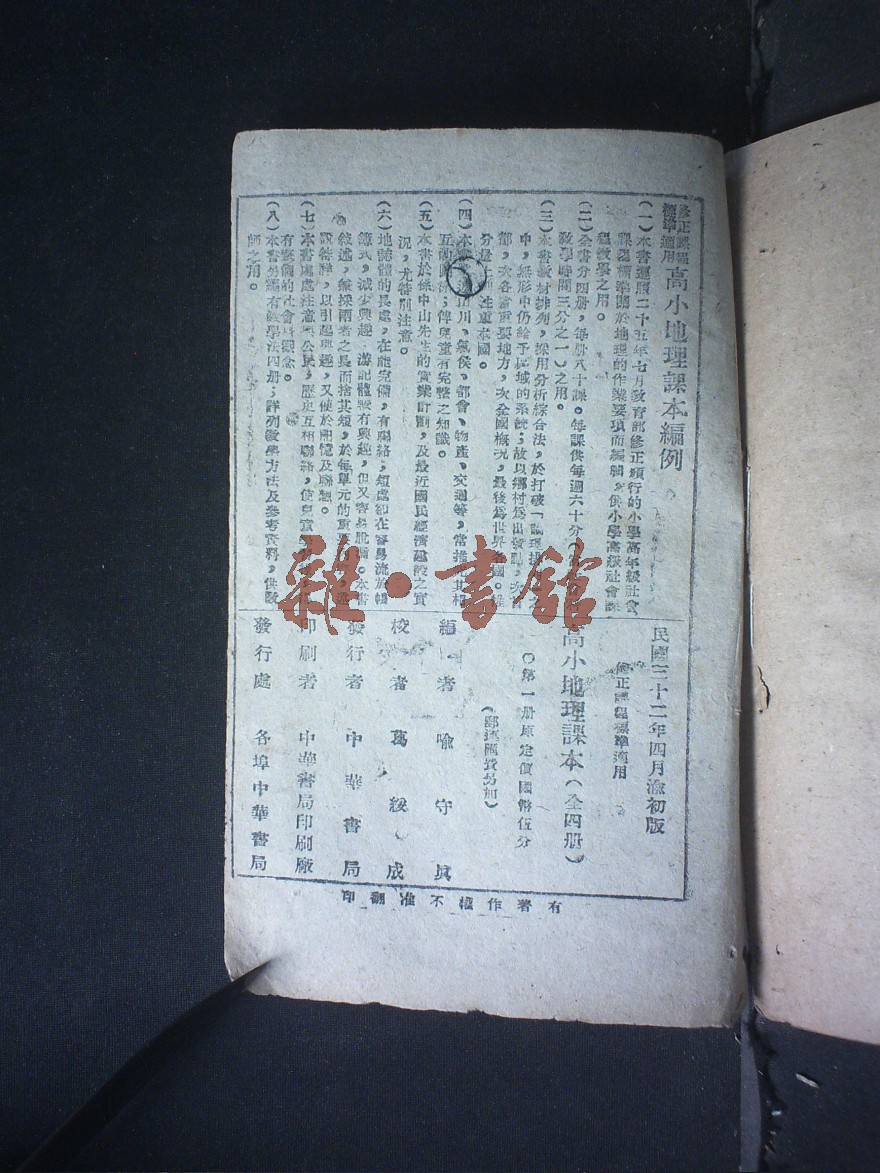 修正課程
標準適用
高小地理課本編例
(一)本書遵照二十五年七月教育部修正頒行的小學高年級社會
課程標準關於地理的作業要項而編輯,供小學高級社會課
程教學之用。
(二)全書分四册,每册八十課。每課供每週六十分
教學時間三分之一)之用。
(三)本書教材排列,採用分析綜合法,於打破「論理
中,無形中仍給予區域的系統;故以鄉村爲出發點,次
都,次各省重要地方,次全國概況,最後爲世界各國。
分量 注重本國。
(四)本 川,氣侯,都會,物產,交通等,常推 其相
互的 係,俾兒童有完整之知識。
(五)本書於孫中山先生的實業計劃,及最近國民經濟建設之實
況,尤特別注意。
(六)地誌體的長處,在能完備,有聯絡,短處卻在容易流於帳
簿式,減少興趣。游記體較有興趣,但又容易脫漏。本書
敍述,兼採兩者之長而捨其短,於每單元的重要
設特詳,以引起興趣,又便於記憶及聯想。
(七)本書處處注意與公民,歷史互相聯絡,使兒童
有整個的社會 觀念。
(八)本書另編有教學法四册;詳列教學方法及參考資料,供教
師之用。
民國三十二年四月渝初版
修正課程標準適用
高小地理課本(全四册)
〇第一册原定價國幣伍分
(郵運匯費另加)
編者 喻守眞
校者 葛綏成
發行者 中華書局
印刷者 中華書局印刷廠
發行處 各埠中華書局
有著作權不准翻印
雜·書館